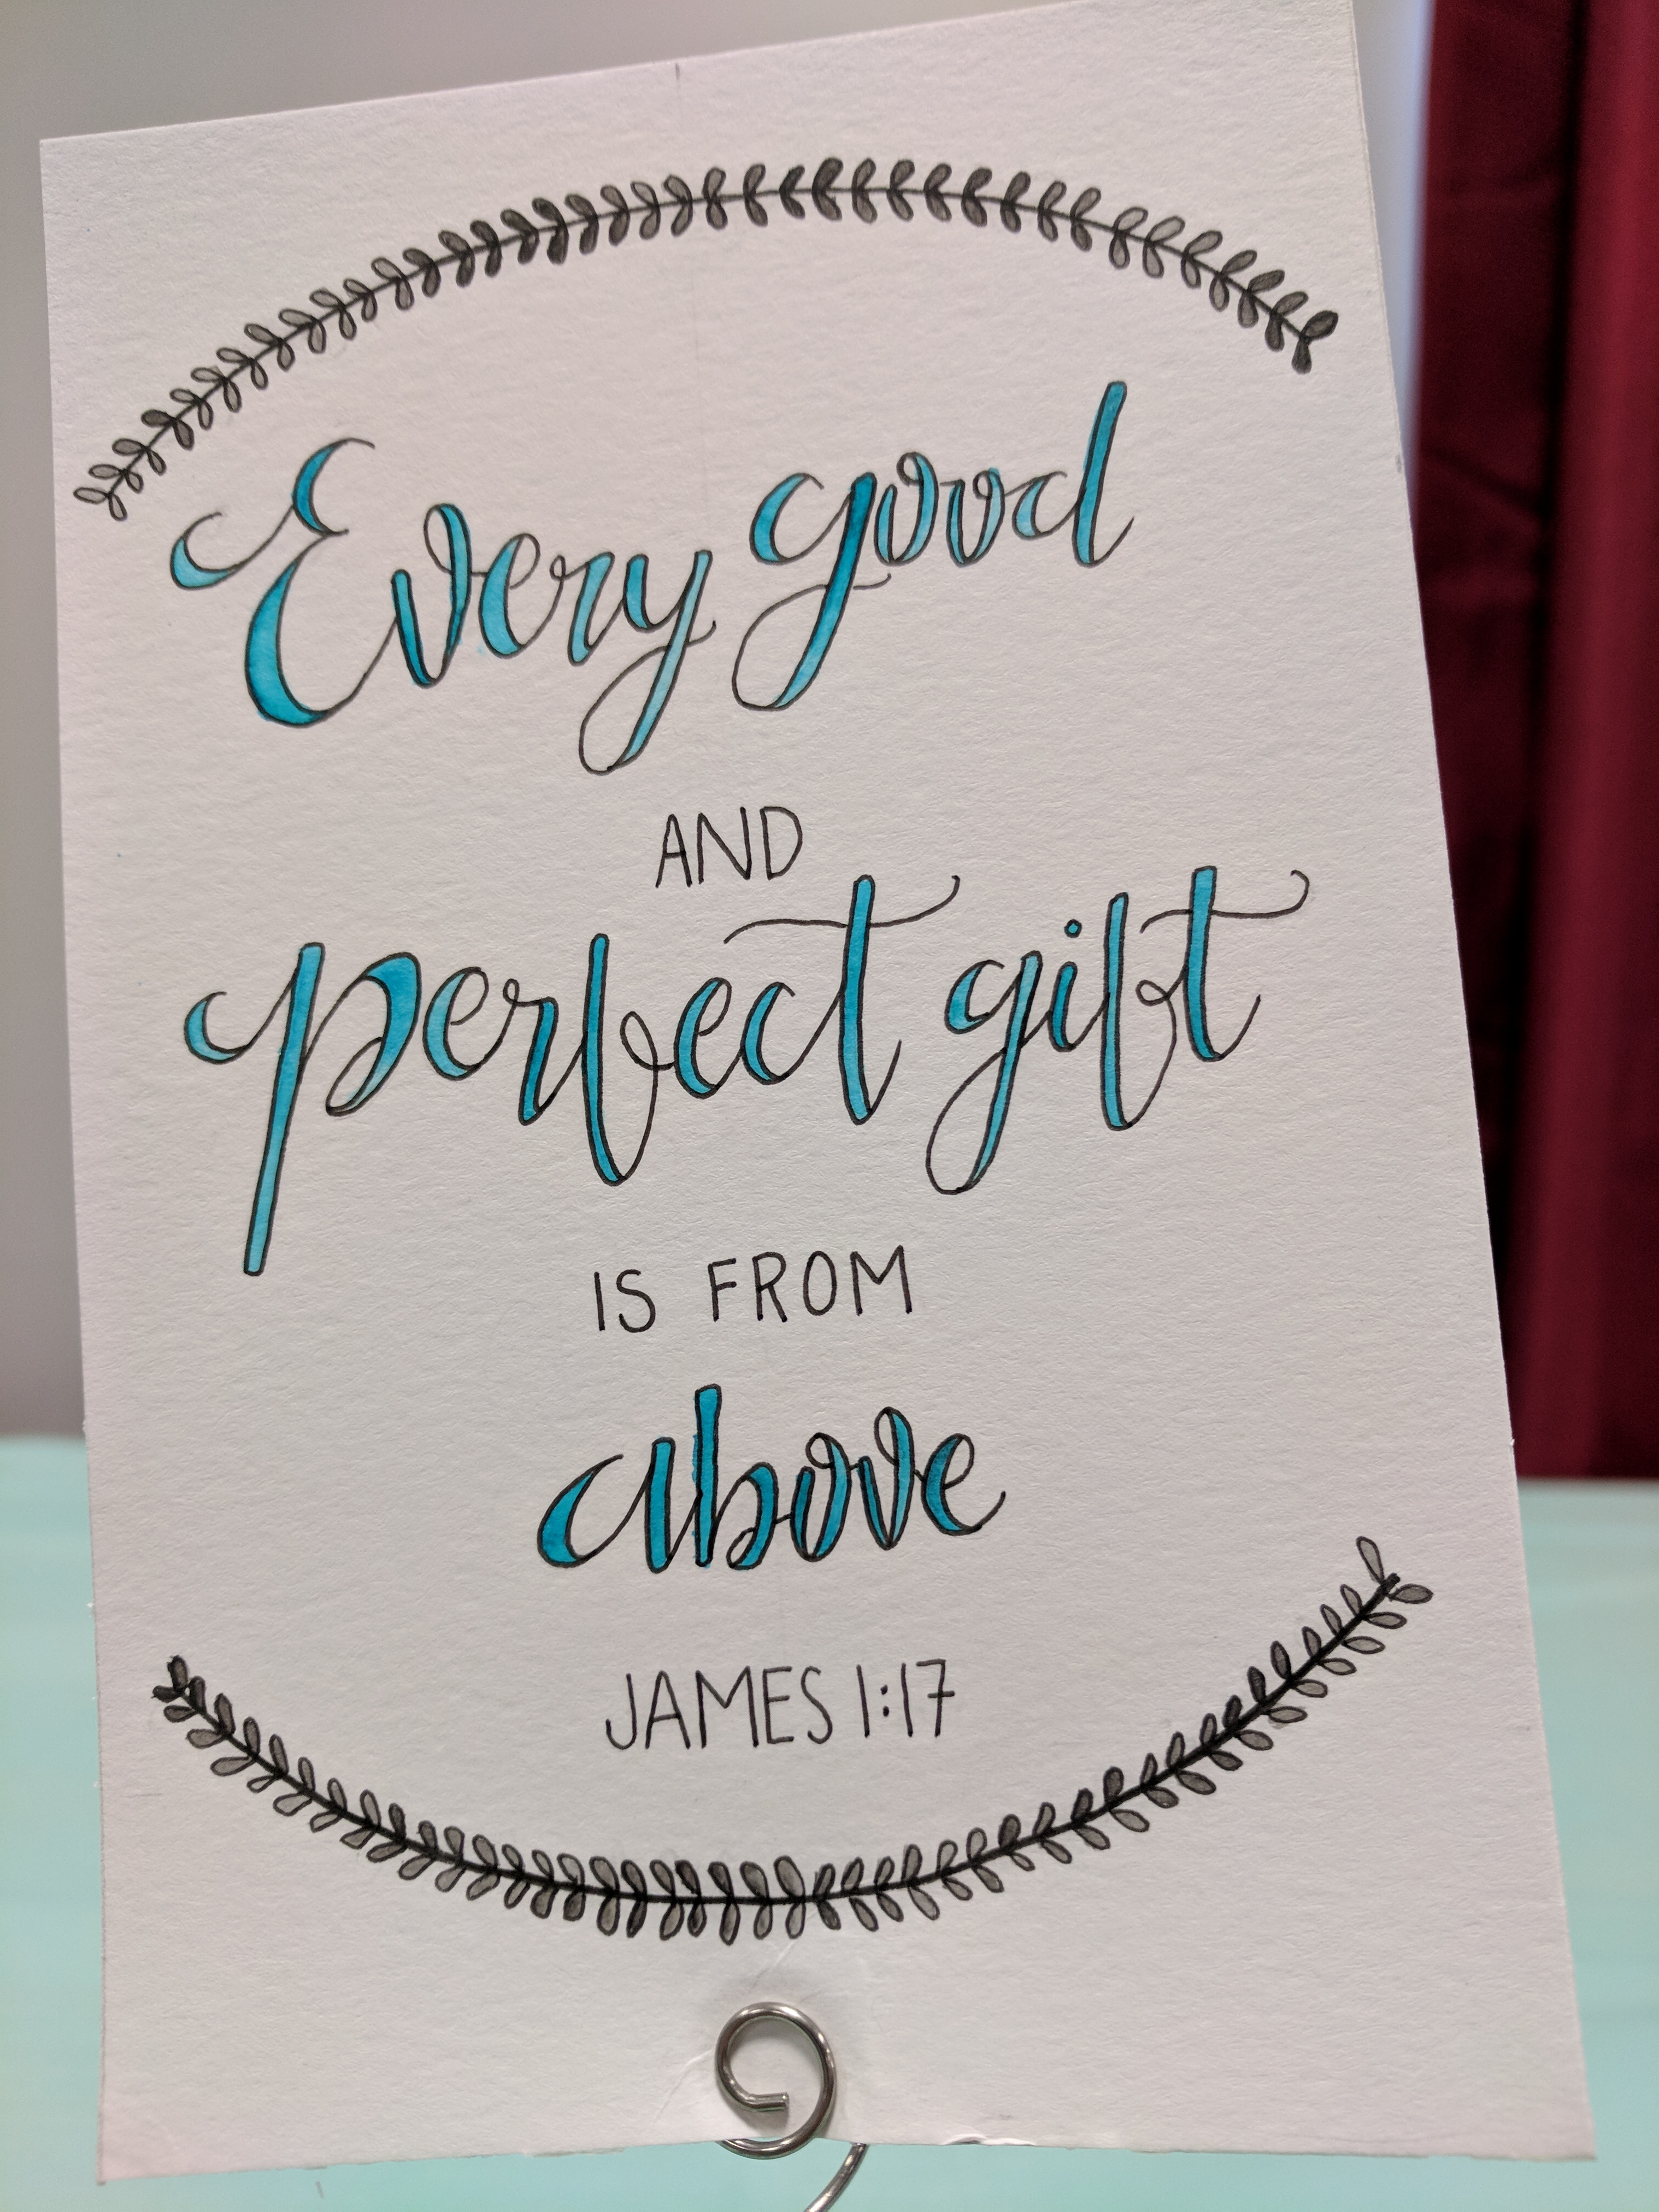 Every good
AND
perfect gift
IS FROM
above
JAMES 1:17